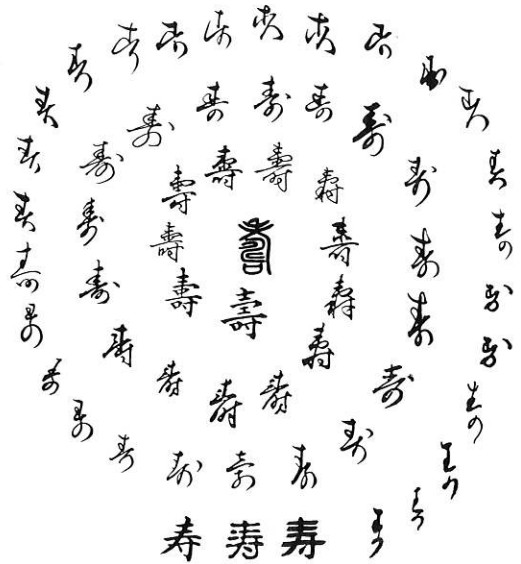 壽壽壽壽壽壽壽寿寿寿寿寿寿寿寿寿寿寿寿寿寿寿寿寿寿寿寿寿寿寿寿寿寿寿寿寿寿寿寿寿寿寿寿寿寿寿寿寿寿寿寿寿寿寿寿寿
寿 寿 寿